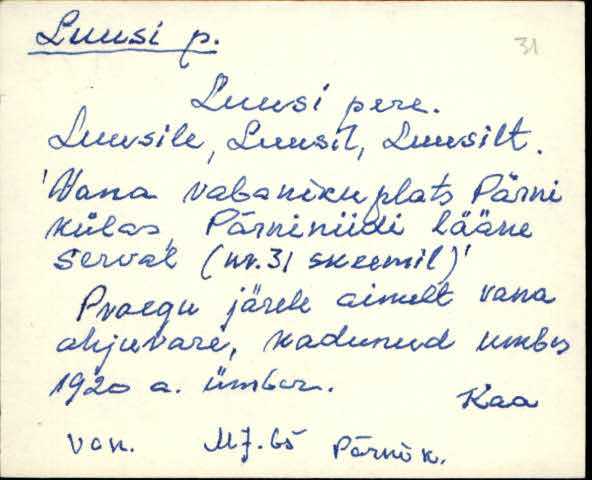 Luusi p.
31
Luusi pere.
Luusile, Luusil, Luusilt.
'Vana vabaniku plats Pärni
külas, Pärniniidi lääne
serval (nr. 31 skeemil)'
Praegu järele ainult vana
ahjuvare, kadunud umbes
1920 a. ümber.
Kaa
Van. MJ. 65 Pärni k.